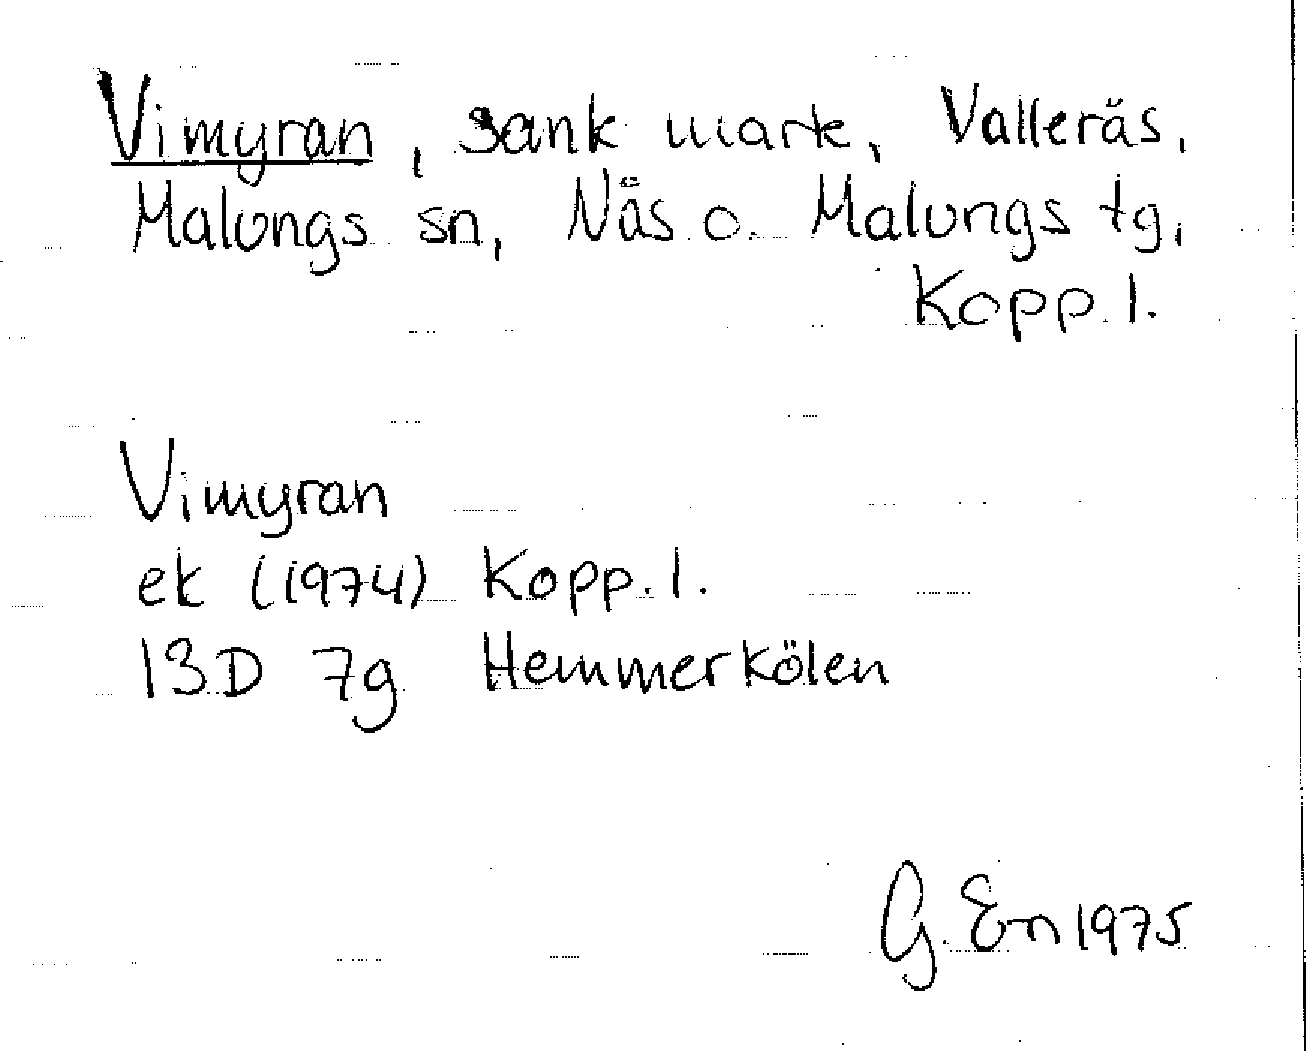 Vimyran, sank mark, Valleräs,
Malungs sn, Näs o. Malungs tg,
Kopp. l.
Vimyran
ek (1974) Kopp. l.
13D 7g Hemmerkölen
G. En 1975